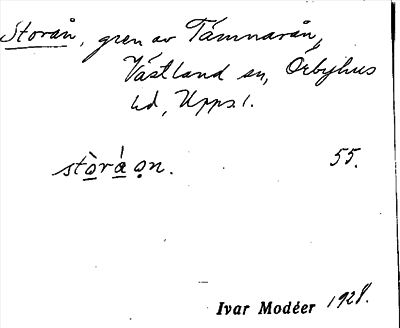 Storån, gren av Tämnarån,
Västland sn, Örbyhus
hd, Upps.l.
stòrá̀ o̥n. 55.
Ivar Modéer 1928.